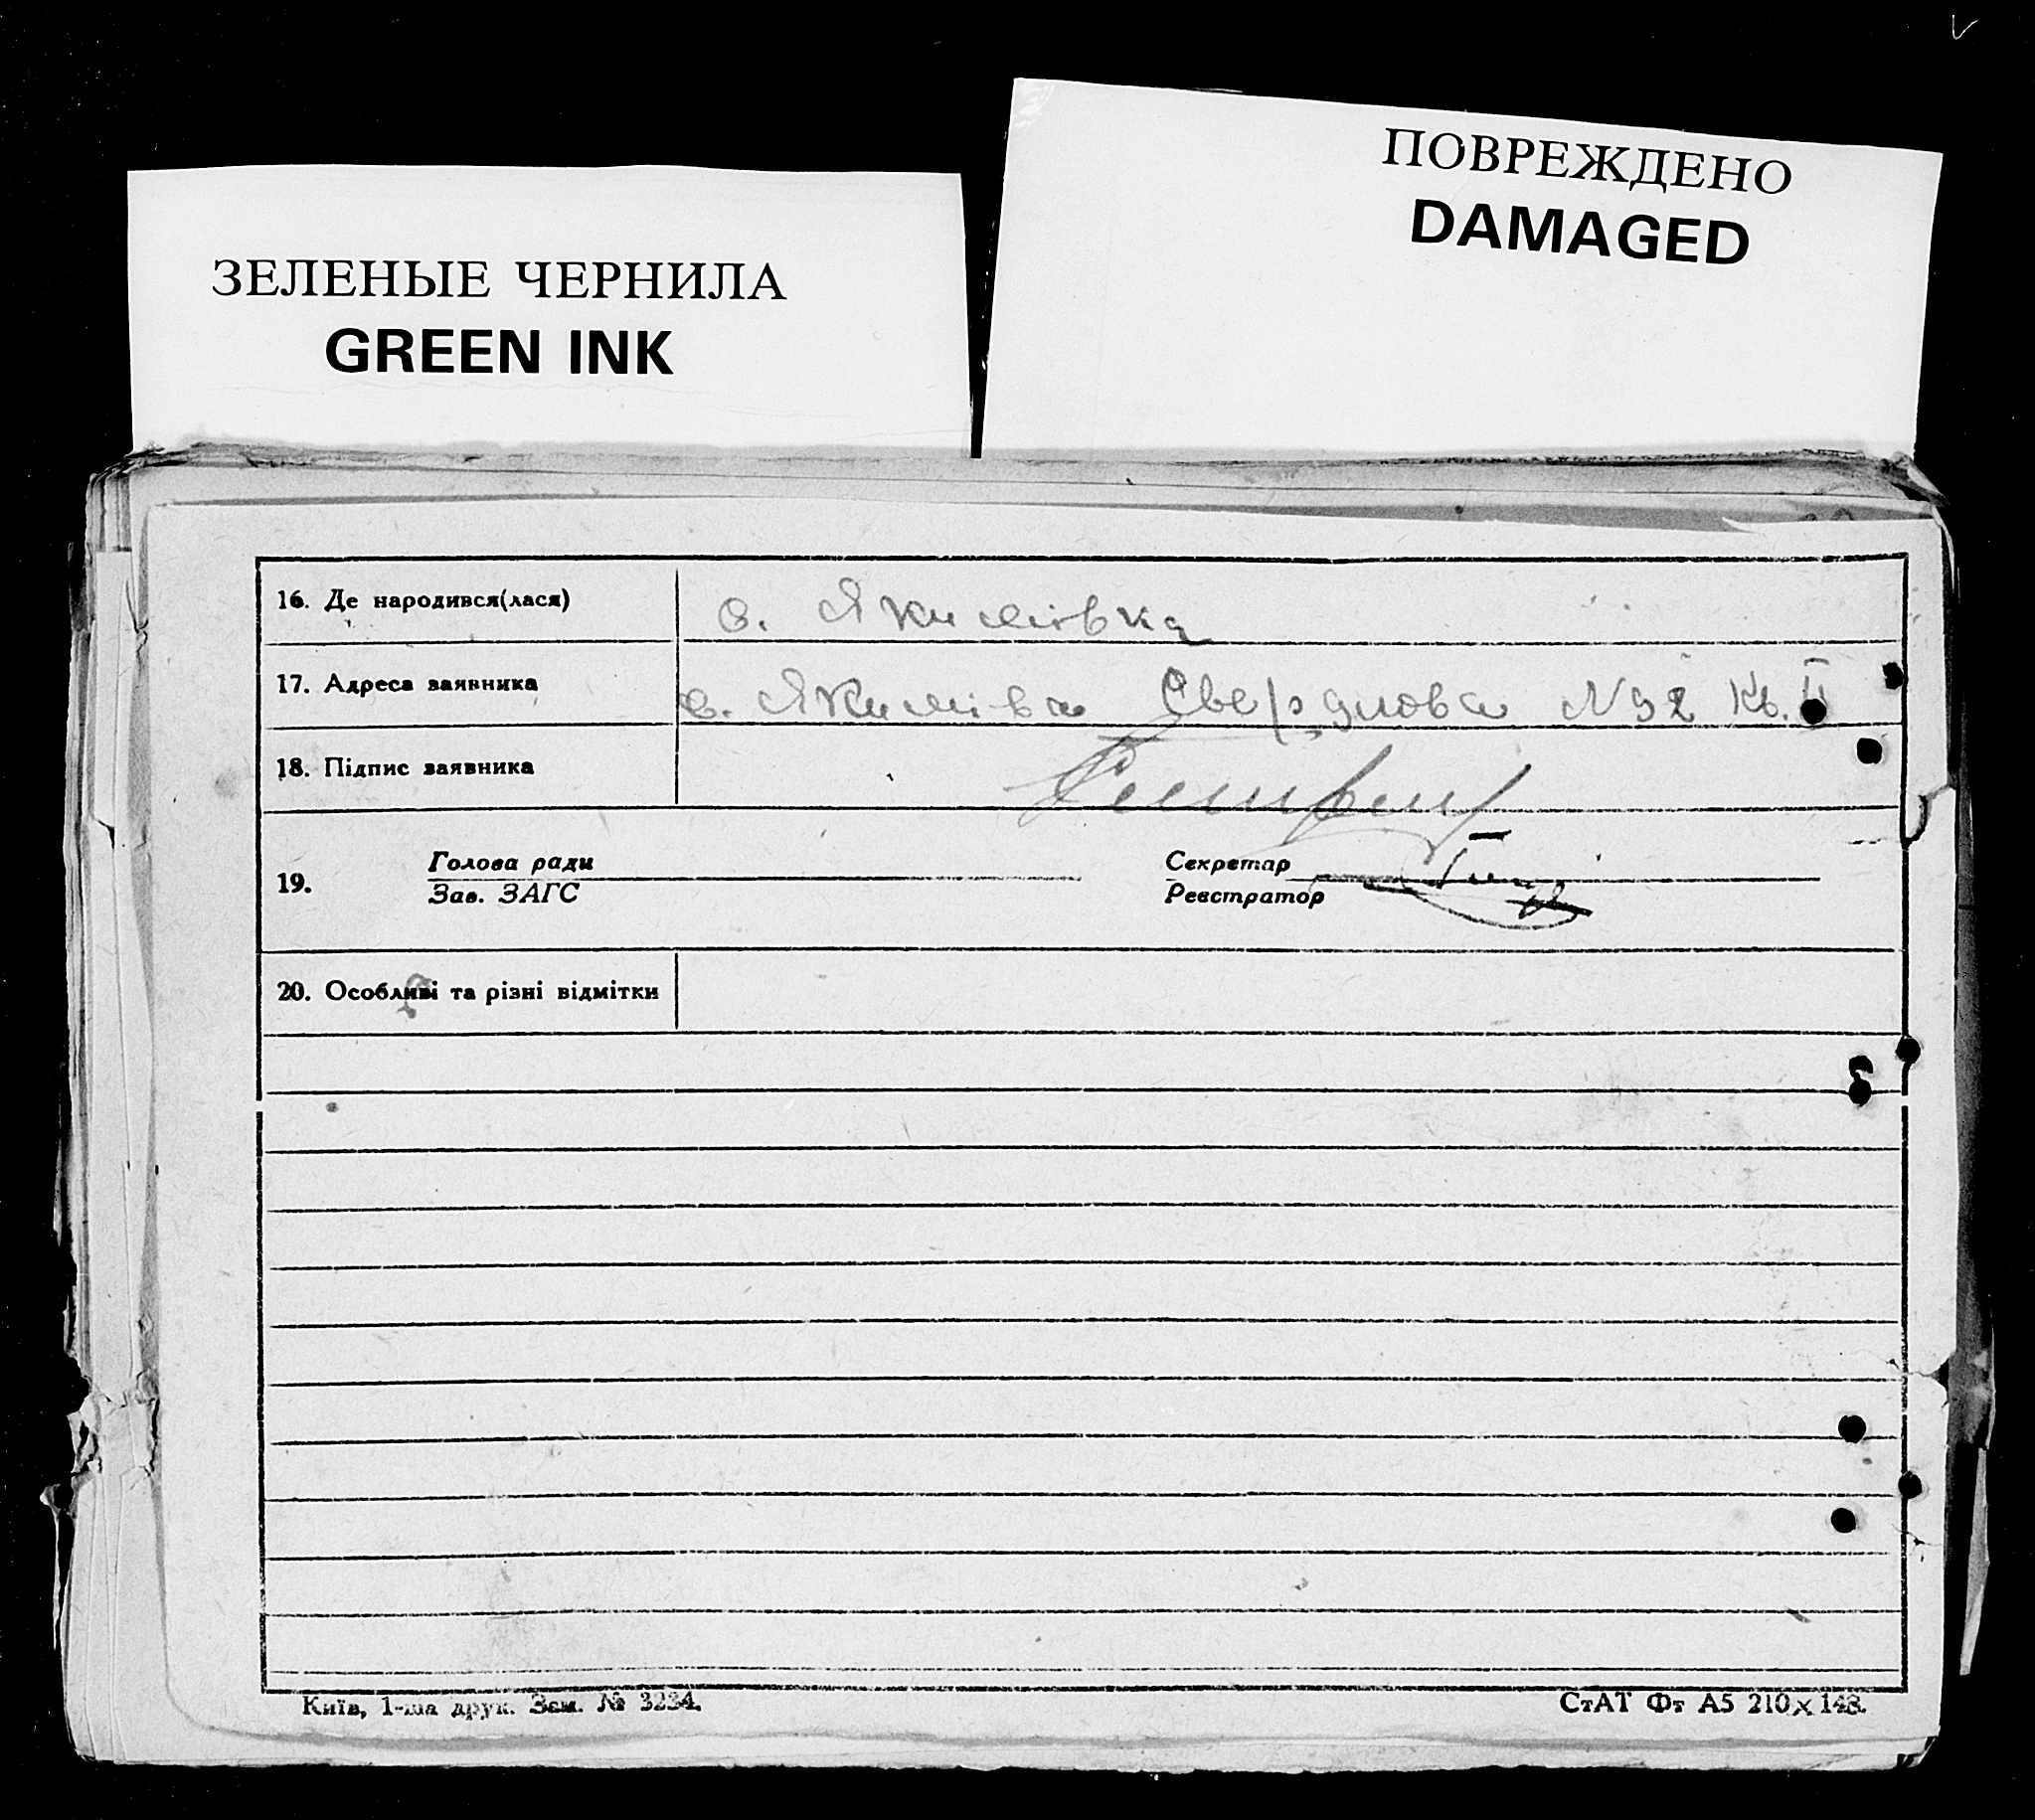 ПОВРЕЖДЕНО
DAMAGED
ЗЕЛЕНЫЕ ЧЕРНИЛА
GREEN INK
16. Де народився(лася) с. Якимівка
17. Адреса заявника с. Якимівка Свердлова N 92 Кв. II
18. Підпис заявника
19. Голова ради Секретар
Зав. ЗАГС Реєстратор
20. Особливі та різні відмітки
Київ, 1-ша друк. Зам. № 3234. СтАТ Фт А5 210×148.